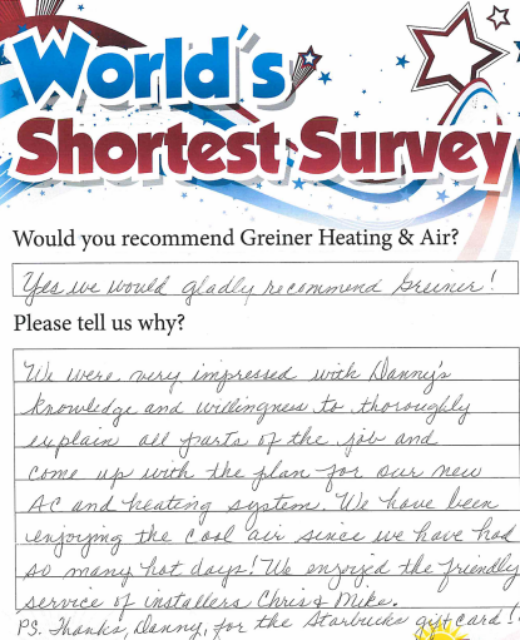 World's
Shortest Survey
Would you recommend Greiner Heating & Air?
Yes we would gladly recommend Greiner!
Please tell us why?
We were very impressed with Danny's
knowledge and willingness to thoroughly
explain all parts of the job and
come up with the plan for our new
AC and heating system. We have been
enjoying the cool air since we have had
so many hot days! We enjoyed the friendly
service of installers Chris & Mike.
PS. Thanks, Danny, for the Starbucks gift card!